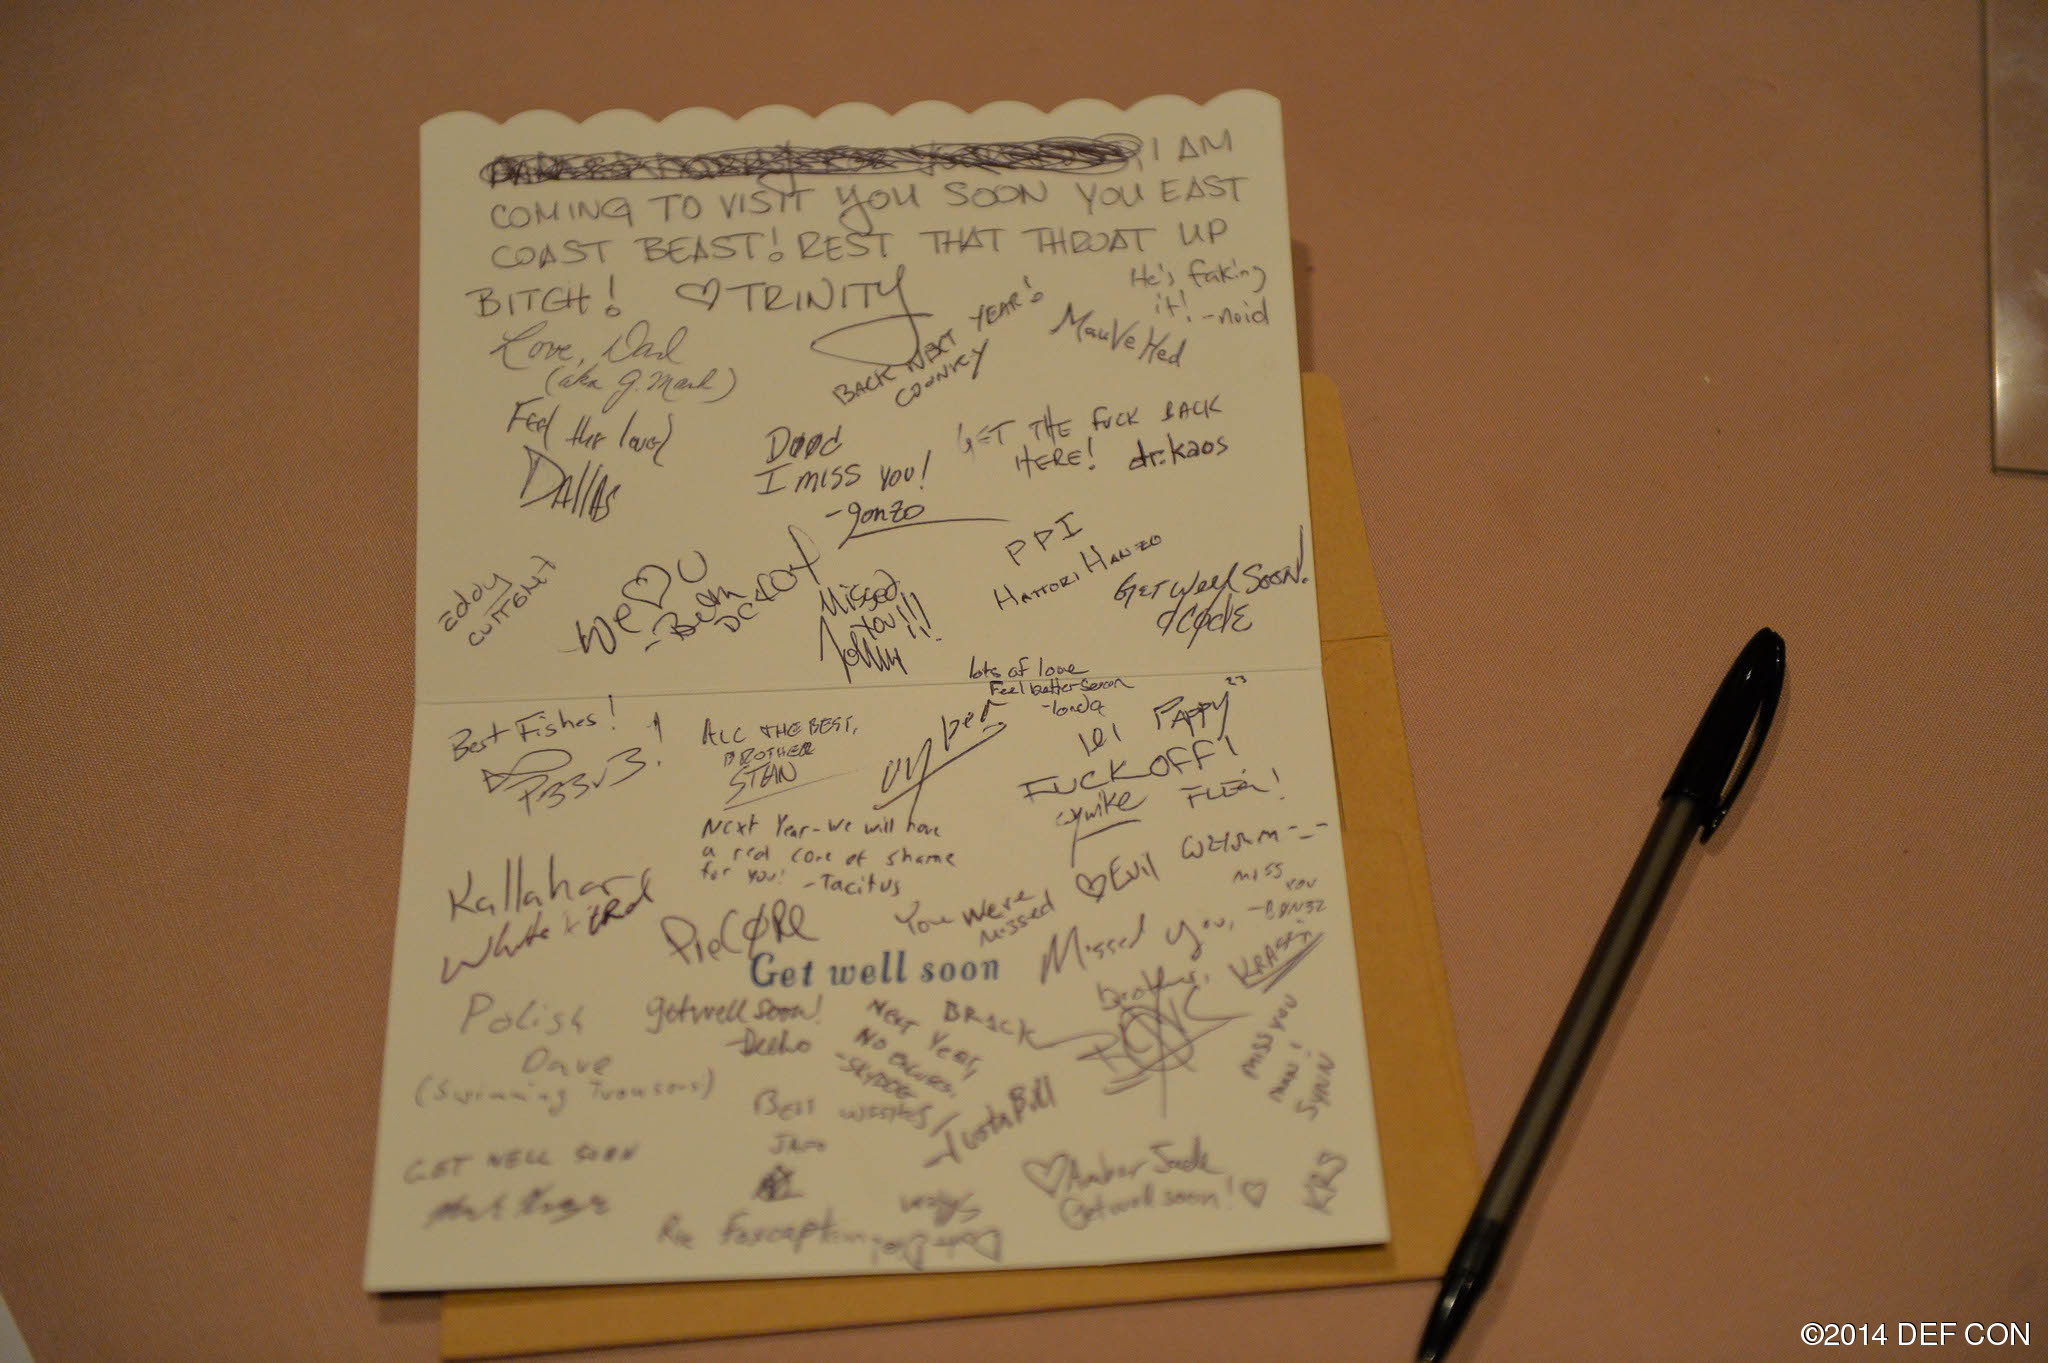 I AM
COMING TO VISIT YOU SOON YOU EAST
COAST BEAST! REST THAT THROAT UP
BITCH! ♡ TRINITY
He's faking
it! -noid
Love, Dad
(aka g. mark)
BACK NEXT YEAR!
MauVeHed
Feel the love!
DALLAS
Dood
I MISS YOU!
-gonzo
GET THE FUCK BACK
HERE! dr.kaos
PPI
HATTORI HANZO
We ♡ U
DC404
Missed
You!!!
GET Well SOON!
dC0de
lots of love
Feel better
Best Fishes!
ALL THE BEST,
BROTHER
STAN
PAPPY
FUCK OFF!
Next Year - We will have
a red cone of shame
for you! -Tacitus
♡ Evil
Kallahar
You were
missed
MISS YOU
Missed you,
brother,
PieC0Re
Get well soon
Polish
Dave
(Swimming Trousers)
get well soon!
NEXT YEAR,
NO excuses.
-SKYDOG
BR1CK
MISS YOU
MAN!
SYNN
BEST WISHES
JustaBill
GET WELL SOON
♡ Amber Jade
Get well soon! ♡
KRS
©2014 DEF CON